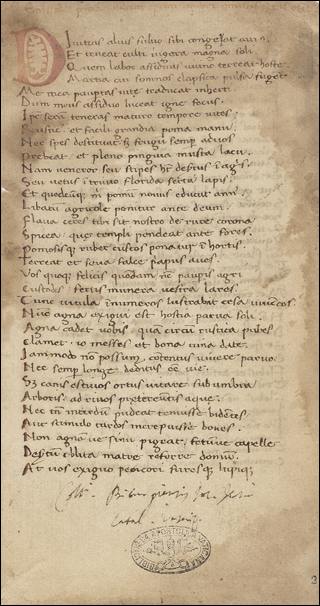 Divitias alius fulvo sibi congerat auro
Et teneat culti iugera magna soli
Quem labor assiduus vicino terreat hoste
Martia cui somnos classica pulsa fugent
Me mea paupertas vite traducat inherti
Dum meus assiduo luceat igne focus
Ipse seram teneras maturo tempore vites
Rustic' et facili grandia poma manu
Nec spes destituat sz frugum semper acervos
Prebeat et pleno pinguia musta lacu
Nam veneror seu stipes habet desertus in agris
Seu vetus in trivio florida serta lapis
Et quodcunque mihi pomum novus educat annus
Libatum agricole ponitur ante deum
Flava ceres tibi sit nostro de rure corona
Spicea que templi pendeat ante fores
Pomosisque rubet custos ponatur in hortis
Terreat et seva falce papus aves
Vos quoque felicis quondam nunc pauperis agri
Custodes fertis munera vestra lares
Tunc vitula innumeros lustrabat cesa iuvencos
Nunc agna exigui est hostia parva soli
Agna cadet vobis quam circum rustica pubes
Clamet io messes et bona vina date
Iam modo non possum contentus vivere parvo
Nec semper longe deditus esse vie
Sz canis estivos ortus vitare sub umbra
Arboris ad rivos pretereuntis aque
Nec tamen interdum pudeat tenuisse bidentes
Aut stimulo tardos increpuisse boves
Non agnamve sinu pigeat fetumve capelle
Desertum oblita matre referre domum
At vos exiguo peccori furesque lupique